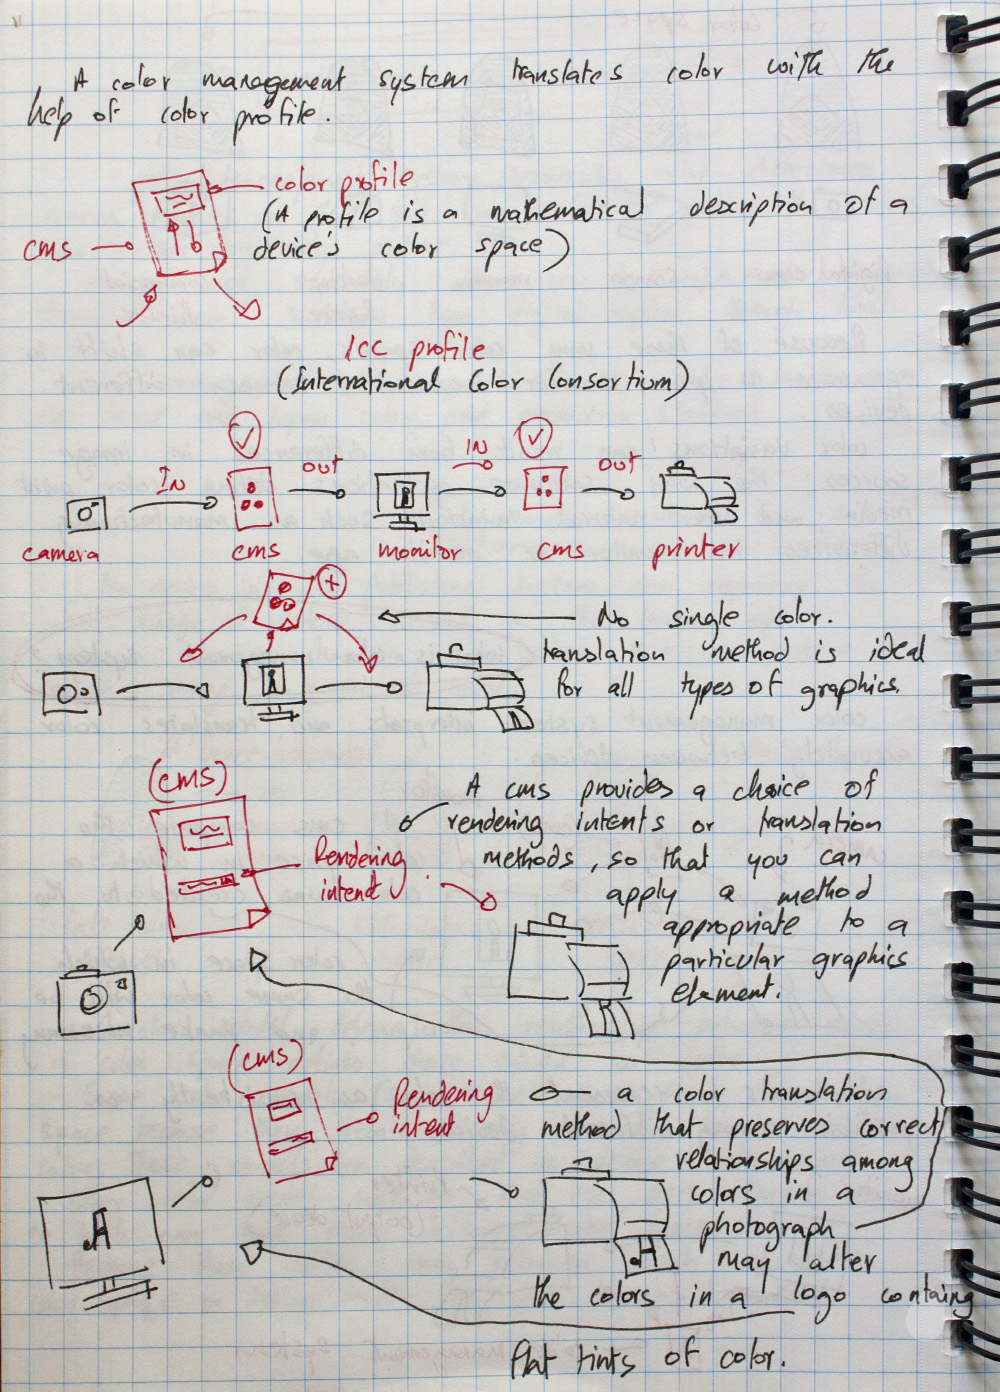 A color management system translates color with the
help of color profile.
color profile
(A profile is a mathematical description of a
device's color space)
cms
ICC profile
(International Color Consortium)
IN
out
IN
out
camera
cms
monitor
cms
printer
No single color.
translation method is ideal
for all types of graphics.
(cms)
A cms provides a choice of
rendering intents or translation
methods, so that you can
apply a method
appropriate to a
particular graphics
element.
Rendering
intent
(cms)
Rendering
intent
a color translation
method that preserves correct
relationships among
colors in a
photograph
may alter
the colors in a logo containg
flat tints of color.
A
A